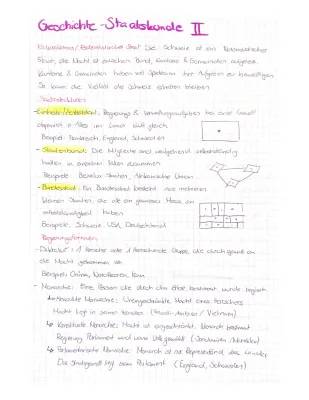 Geschichte - Staatskunde II
Föderalistischer Staat: Die Schweiz ist ein föderalistischer
Staat, die Macht ist zwischen Bund, Kantone & Gemeinden aufgeteilt.
Kantone & Gemeinden haben viel Spielraum ihre Aufgaben zu bewältigen
So kann die Vielfalt der Schweiz erhalten bleiben
Staatsstrukturen
- Einheitsstaat: Regierungs & Verwaltungsaufgaben bei einer
Alles im Land läuft gleich.
Beispiel: Frankreich, England, Schweden
- Staatenbund: Die Mitglieder sind weitgehend unabhängig
halten in einzelnen Fällen zusammen
Beispiele: Benelux-Staaten, Afrikanische Union
- Bundesstaat: Ein Bundesstaat besteht aus mehreren
kleinen Staaten, die alle ein gewisses Mass an
haben
Beispiele: Schweiz, USA, Deutschland
Regierungsformen
- Diktatur: 1 Herrscher oder 1 herrschende Gruppe, die durch gewalt an
die Macht gekommen
Beispiel: China, Nordkorea, Iran
- Monarchie: Eine Person die durch das Erbe bestimmt wurde regiert.
Absolute Monarchie: Uneingeschränkte Macht eines Herrschers
Macht liegt in seinen Händen (Saudi-Arabien / Vatikan)
Konstitutionelle Monarchie: Macht ist eingeschränkt, Monarch bestimmt
Regierung, Parlament und
Parlamentarische Monarchie: Monarch ist nur Repräsentant des Landes
Die Staatsgewalt liegt beim Parlament (England, Schweden)